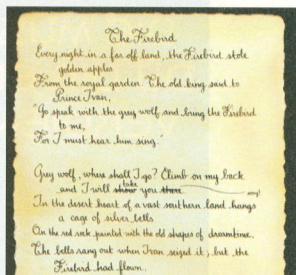 The Firebird
Every night in a far off land, the Firebird stole
golden apples
From the royal garden. The old king said to
Prince Ivan,
"Go speak with the grey wolf, and bring the Firebird
to me,
For I must hear him sing."
Grey wolf, where shall I go? Climb on my back
and I will show take you there
In the desert heart of a vast southern land hangs
a cage of silver bells
On the red rock painted with the old shapes of dreamtime.
The bells rang out when Ivan seized it, but the
Firebird had flown.